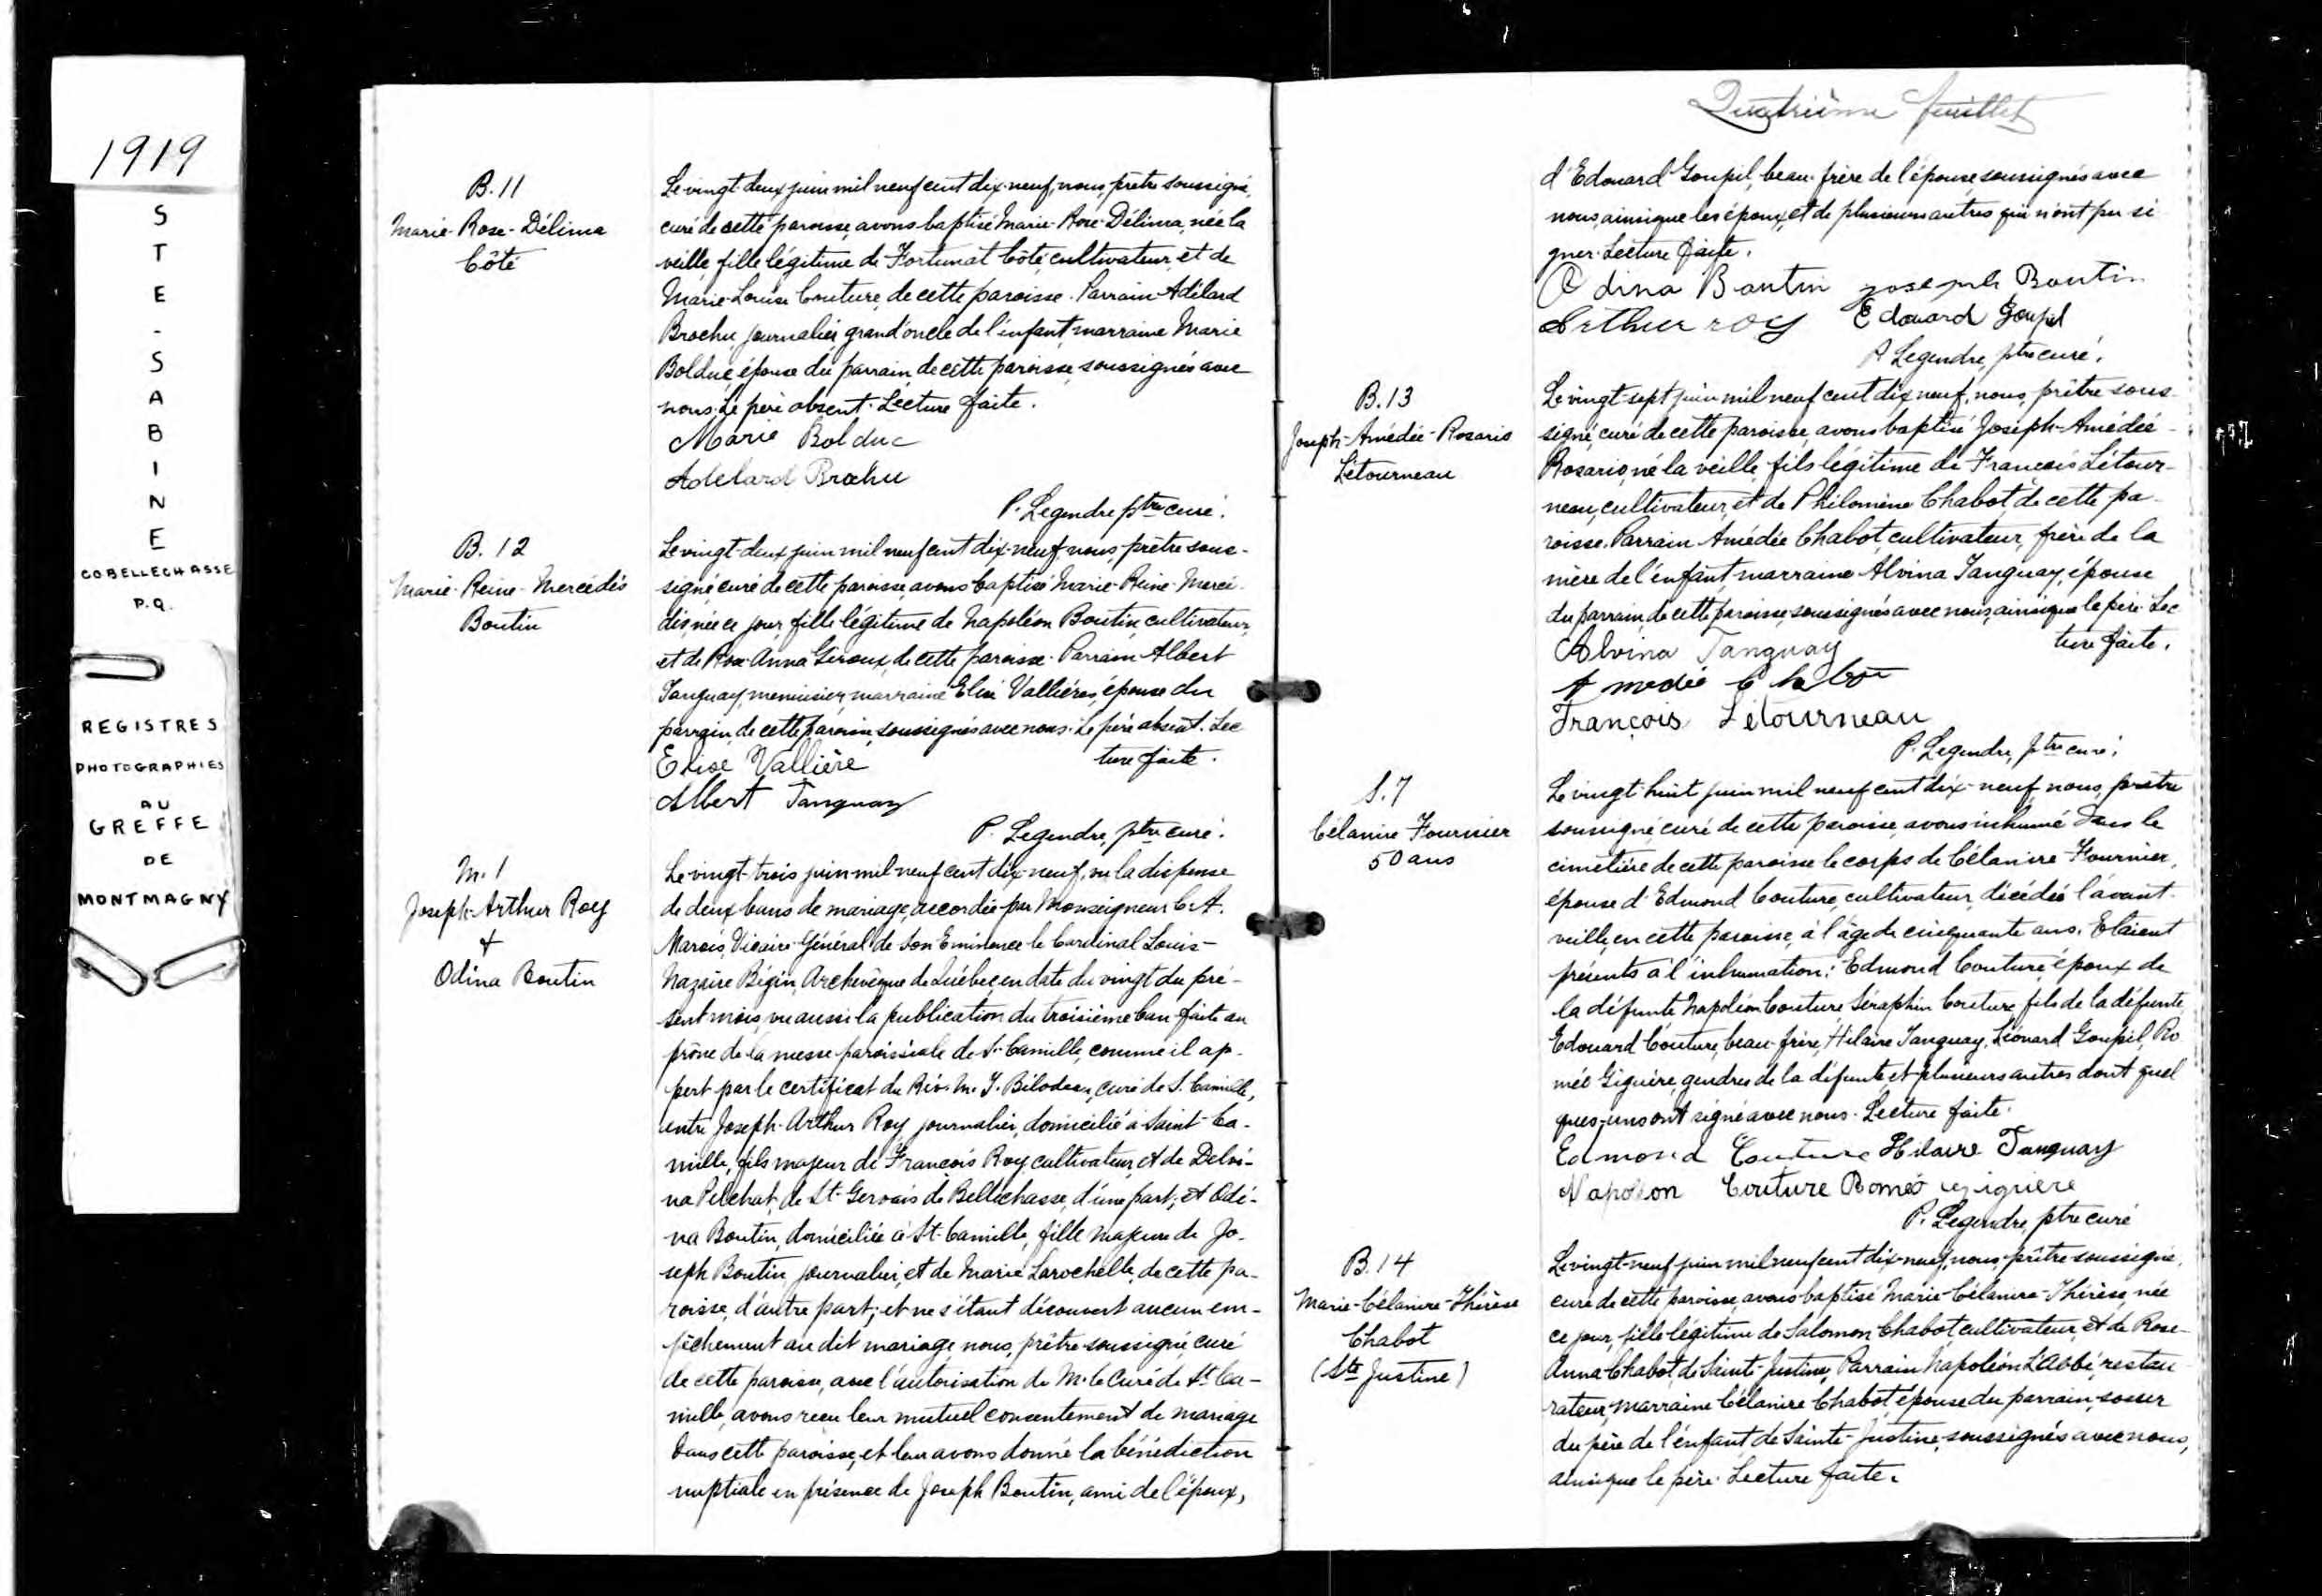 1919
S
T
E
-
S
A
B
I
N
E
COBELLECHASSE
P.Q.
REGISTRES
PHOTOGRAPHIES
AU
GREFFE
DE
MONTMAGNY
B.11
Marie-Rose-Délima
Côté
Le vingt-deux juin mil neuf cent dix-neuf, nous, prêtre soussigné,
curé de cette paroisse, avons baptisé Marie-Rose-Délima, née la
veille, fille légitime de Fortunat Côté, cultivateur, et de
Marie-Louise Couture, de cette paroisse. Parrain Adélard
Brochu, journalier, grand'oncle de l'enfant, marraine Marie
Bolduc, épouse du parrain de cette paroisse, soussignés avec
nous. Le père absent. Lecture faite.
Marie Bolduc
Adelard Brochu
P. Legendre ptre curé.
B. 12
Marie-Reine-Mercédès
Boutin
Le vingt-deux juin mil neuf cent dix-neuf, nous, prêtre sous-
signé, curé de cette paroisse, avons baptisé Marie-Reine-Mercé-
dès, née ce jour, fille légitime de Napoléon Boutin, cultivateur,
et de Rose-Anna Giroux, de cette paroisse. Parrain Albert
Tanguay, menuisier, marraine Elise Vallières, épouse du
parrain, de cette paroisse, soussignés avec nous. Le père absent. Lec
ture faite.
Elise Vallière
Albert Tanguay
P. Legendre, ptre curé.
M. 1
Joseph-Arthur Roy
+
Odina Boutin
Le vingt-trois juin mil neuf cent dix-neuf, vu la dispense
de deux bans de mariage, accordée par Monseigneur C. A.
Marois, Vicaire-Général de Son Eminence le Cardinal Louis-
Nazaire Bégin, Archevêque de Québec, en date du vingt du pré-
sent mois, vu aussi la publication du troisième ban faite au
prône de la messe paroissiale de S. Camille, comme il ap-
pert par le certificat du Rév. M. J. Bilodeau, curé de S. Camille,
entre Joseph-Arthur Roy, journalier, domicilié à Saint-Ca-
mille, fils majeur de François Roy, cultivateur, et de Delvi-
na Pelchat, de St-Gervais de Bellechasse, d'une part; et Odi-
na Boutin, domiciliée à St-Camille, fille majeure de Jo-
seph Boutin, journalier, et de Marie Larochelle, de cette pa-
roisse, d'autre part; et ne s'étant découvert aucun em-
pêchement au dit mariage, nous, prêtre soussigné, curé
de cette paroisse, avec l'autorisation de M. le Curé de St Ca-
mille, avons reçu leur mutuel consentement de mariage
dans cette paroisse, et leur avons donné la bénédiction
nuptiale en présence de Joseph Boutin, ami de l'époux,
Quatrième feuillet
d'Edouard Goupil, beau-frère de l'épouse, soussignés avec
nous, ainsi que les époux, et de plusieurs autres qui n'ont pu si
gner. Lecture faite.
Odina Boutin Joseph Boutin
Arthur roy Edouard Goupil
P. Legendre, ptre curé.
B. 13
Joseph-Amédée-Rosario
Létourneau
Le vingt-sept juin mil neuf cent dix neuf, nous, prêtre sous-
signé, curé de cette paroisse, avons baptisé Joseph-Amédée-
Rosario, né la veille, fils légitime de François Létour-
neau, cultivateur, et de Philomène Chabot, de cette pa-
roisse. Parrain Amédée Chabot, cultivateur, frère de la
mère de l'enfant, marraine Alvina Tanguay, épouse
du parrain de cette paroisse, soussignés avec nous, ainsi que le père. Lec
ture faite.
Alvina Tanguay
Amedée Chabot
François Létourneau
P. Legendre, ptre curé.
S. 7
Célanire Fournier
50 ans
Le vingt-huit juin mil neuf cent dix-neuf, nous, prêtre
soussigné, curé de cette paroisse, avons inhumé dans le
cimetière de cette paroisse le corps de Célanire Fournier,
épouse d'Edmond Couture, cultivateur, décédée l'avant-
veille, en cette paroisse, à l'âge de cinquante ans. Etaient
présents à l'inhumation: Edmond Couture, époux de
la défunte, Napoléon Couture, Séraphin Couture, fils de la défunte,
Edouard Couture, beau-frère, Hilaire Tanguay, Léonard Goupil, Ro
méo Giguère, gendres de la défunte, et plusieurs autres dont quel
ques-uns ont signé avec nous. Lecture faite.
Edmond Couture Hilaire Tanguay
Napoleon Couture Roméo Gignière
P. Legendre, ptre curé
B. 14
Marie-Célanire-Thérèse
Chabot
(Ste Justine)
Le vingt-neuf juin mil neuf cent dix-neuf, nous, prêtre soussigné,
curé de cette paroisse, avons baptisé Marie-Célanire-Thérèse, née
ce jour, fille légitime de Salomon Chabot, cultivateur, et de Rose-
Anna Chabot, de Sainte-Justine. Parrain Napoléon L'Abbé, restau
rateur, marraine Célanire Chabot, épouse du parrain, soeur
du père de l'enfant, de Sainte-Justine, soussignés avec nous,
ainsi que le père. Lecture faite.